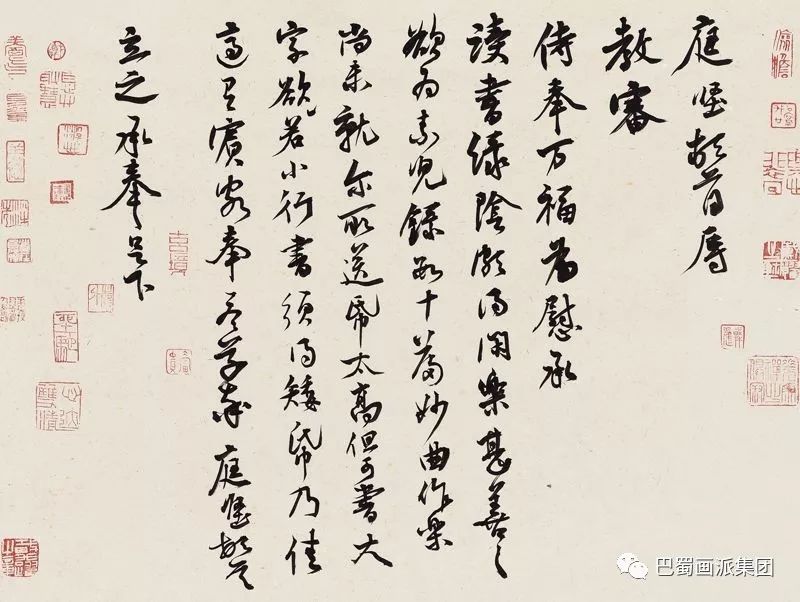 庭堅頓首辱
教審
侍奉万福為慰承
讀書綠陰頗得閑樂甚善々
欲為素兒錄數十篇妙曲作樂
尚未就尔所送帋太高但可書大
字欲若小行書須得矮帋乃佳
適有賓客奉答草率庭堅頓首
立之承奉足下
巴蜀画派集团